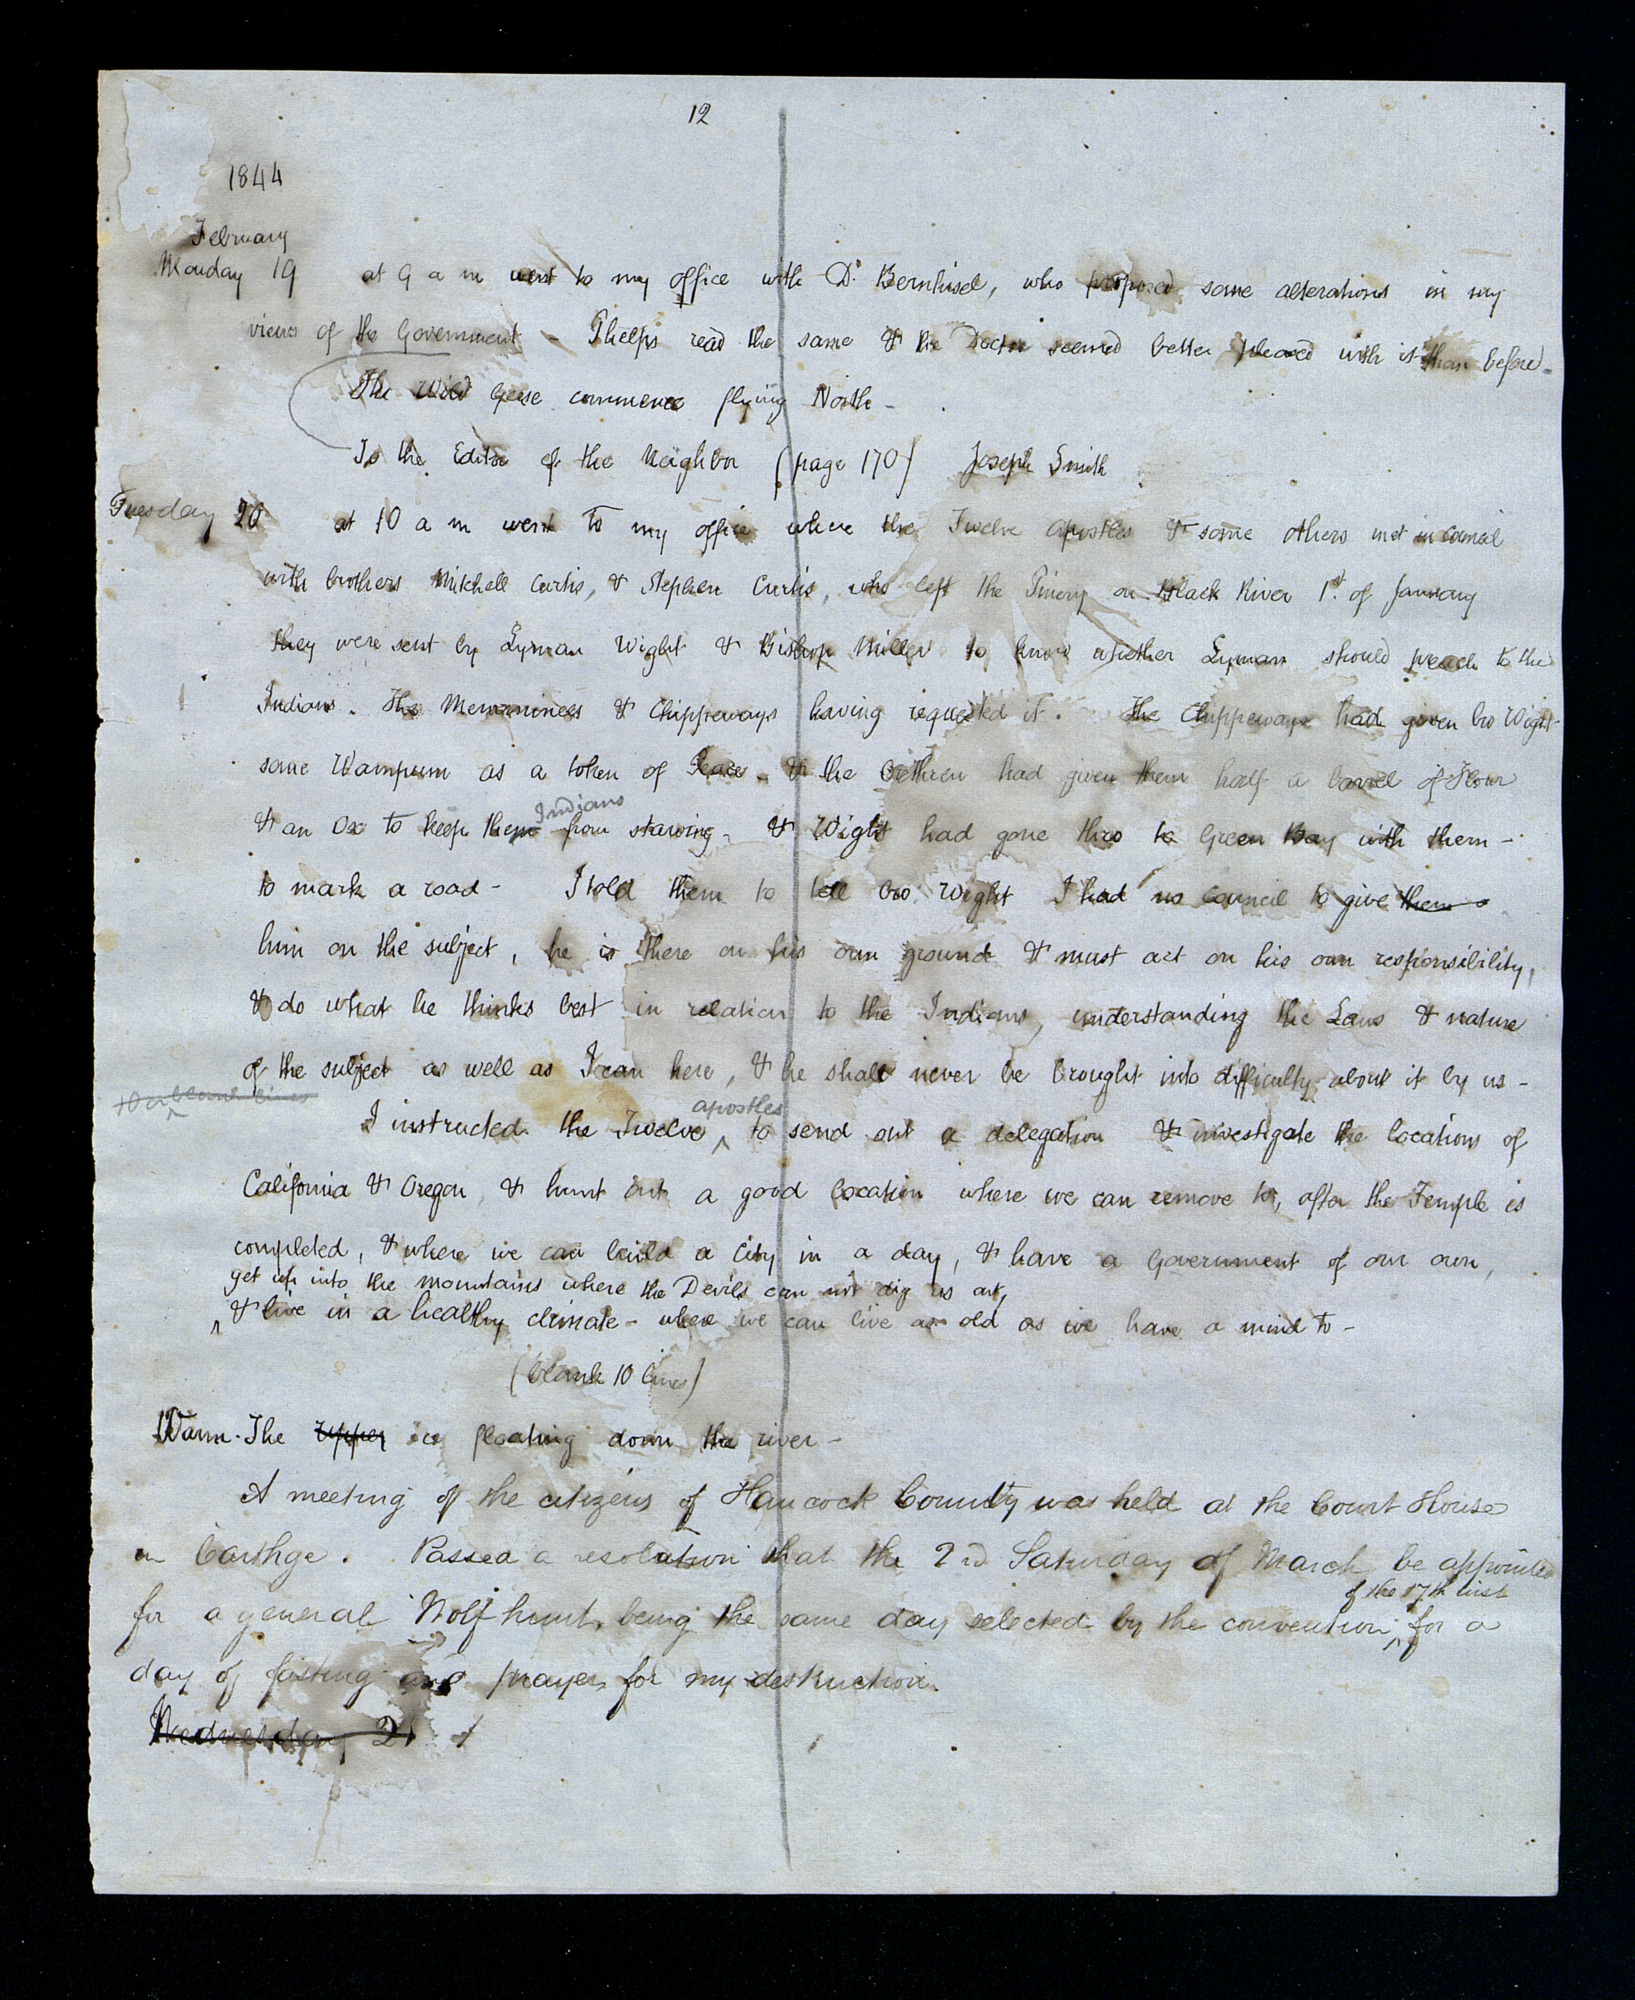 12
1844
February
Monday 19 at 9 a m went to my office with Dr. Bernhisel, who proposed some alterations in my
views of the Government - Phelps read the same & the Doctor seemed better pleased with it than before -
The Wild Geese commence flying North -
To the Editor of the Neighbor (page 170) Joseph Smith
Tuesday 20 at 10 a m went to my office where the Twelve apostles & some others met in council
with brothers Mitchell Curtis, & Stephen Curtis, who left the Pinery on Black River 1st. of January
they were sent by Lyman Wight & Bishop Miller to know whether Lyman should preach to the
Indians. The Menominees & Chippeways having requested it. The Chippeways had given bro Wight
some Wampum as a token of Peace - & the brethren had given them half a barrel of Flour
Indians
& an Ox to keep them from starving - & Wight had gone thro to Green Bay with them -
to mark a road - I told them to tell bro Wight I had no council to give them
him on the subject, he is there on his own ground & must act on his own responsibility,
& do what he thinks best in relation to the Indians, understanding the Laws & nature
of the subject as well as I can here, & he shall never be brought into difficulty about it by us -
10 blank lines
apostles
I instructed the Twelve ^ to send out a delegation & investigate the locations of
California & Oregon & hunt out a good location where we can remove to, after the Temple is
completed, & where we can build a City in a day, & have a Government of our own,
get up into the mountains where the Devils can not dig us out,
^ & live in a healthy climate - where we can live as old as we have a mind to -
(blank 10 lines)
Warm. The Upper ice floating down the river -
A meeting of the citizens of Hancock County was held at the Court House
in Carthge. Passed a resolution that the 2nd Saturday of March be appointed
of the 17th inst
for a general Wolf hunt, being the same day selected by the convention ^ for a
day of fasting and prayer for my destruction.
Wednesday 21